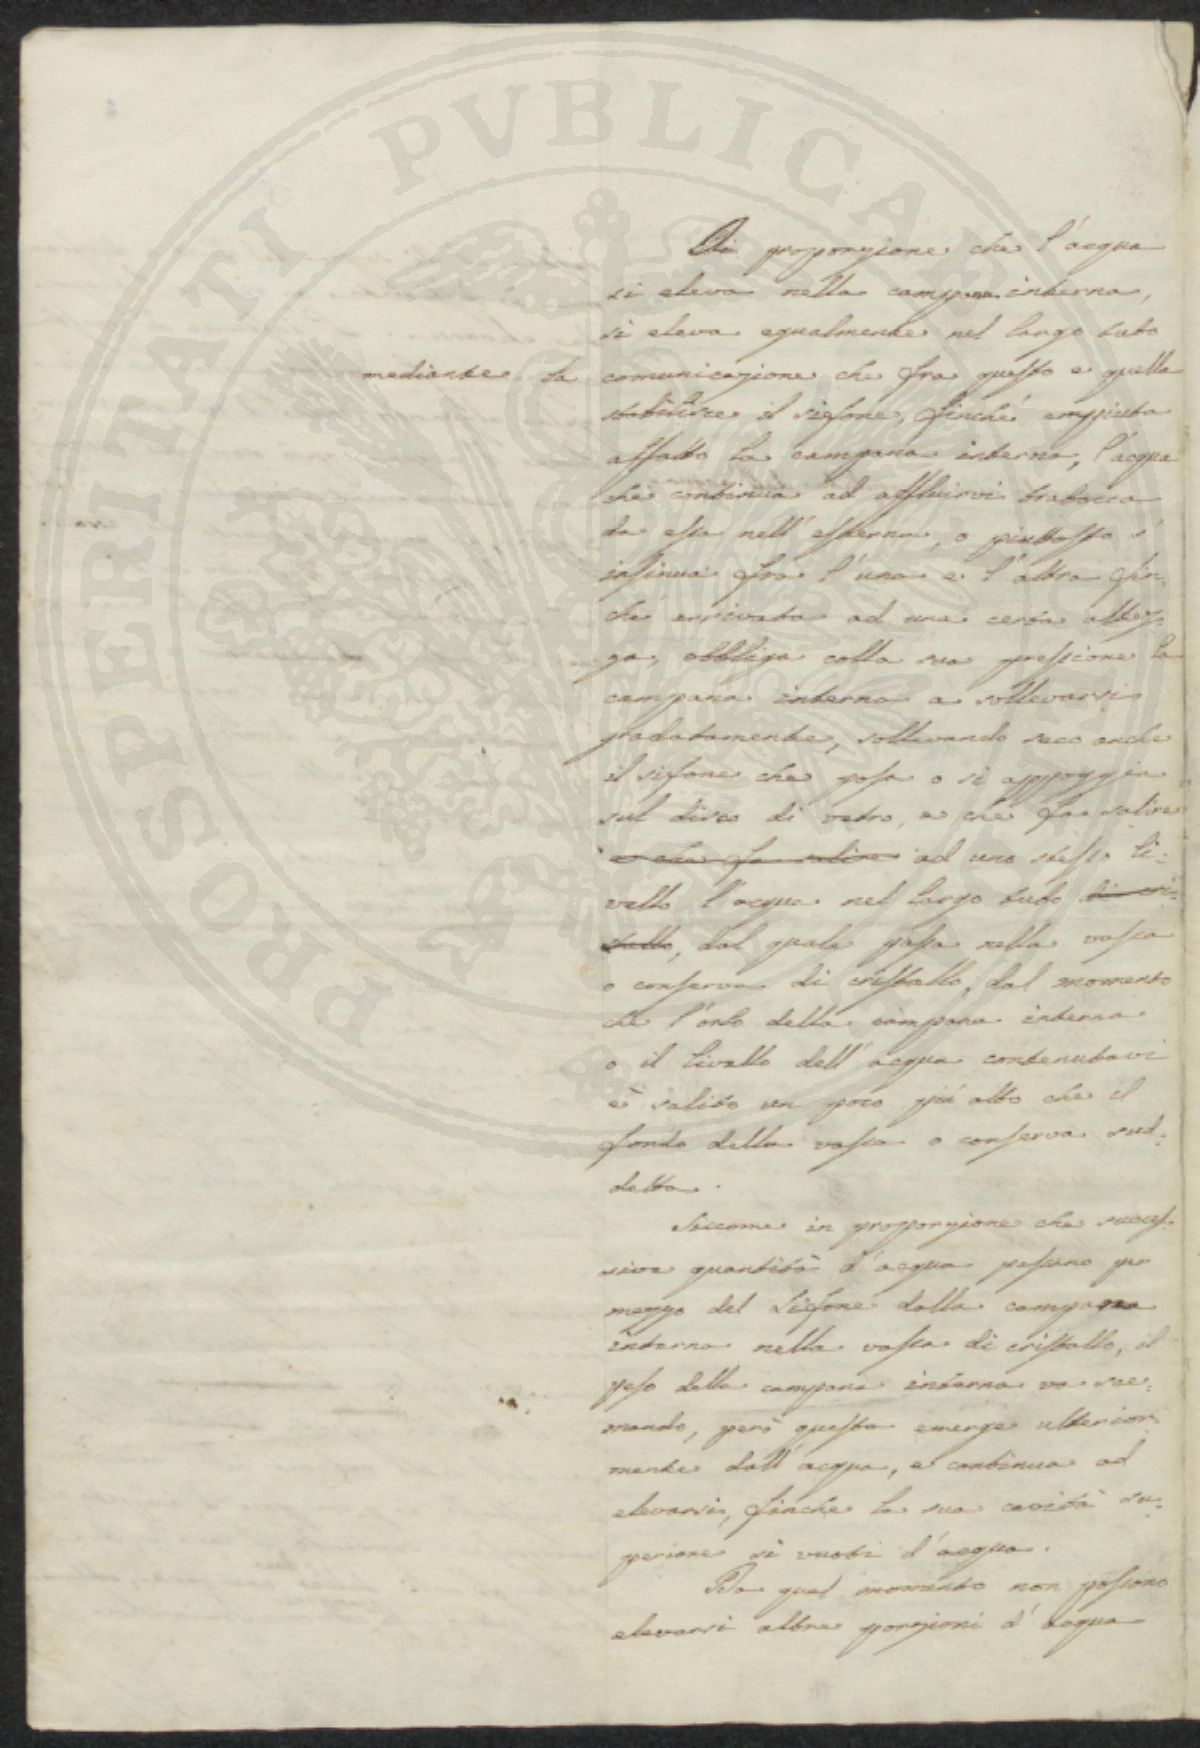 A proporzione che l'acqua
si eleva nella campana interna,
si eleva egualmente nel largo tubo
mediante la comunicazione che fra questo e quella
stabilisce il sifone, finché empiuta
affatto la campana interna, l'acqua
che continua ad affluirvi trabocca
da essa nell'esterna, o piuttosto s'
insinua fra l'una e l'altra fin-
ché arrivata ad una certa altez-
za, obbliga colla sua pressione la
campana interna a sollevarsi
gradatamente, sollevando seco anche
il sifone che posa o si appoggia
sul disco di vetro, e che fa salire
e che fa salire ad uno stesso li-
vello l'acqua nel largo tubo di cri-
stallo, dal quale passa nella vasca
o conserva di cristallo, dal momento
che l'orlo della campana interna
o il livello dell'acqua contenutavi
è salito un poco più alto che il
fondo della vasca o conserva sud-
detta.
Siccome in proporzione che succes-
sive quantità d'acqua passano per
mezzo del Sifone dalla campana
interna nella vasca di cristallo, il
peso della campana interna va sce-
mando, però questa emerge ulterior-
mente dall'acqua, e continua ad
elevarsi, finche la sua cavità su-
periore si vuoti d'acqua.
Da quel momento non possono
elevarsi altre porzioni d'acqua
PROSPERITATI PVBLICAE